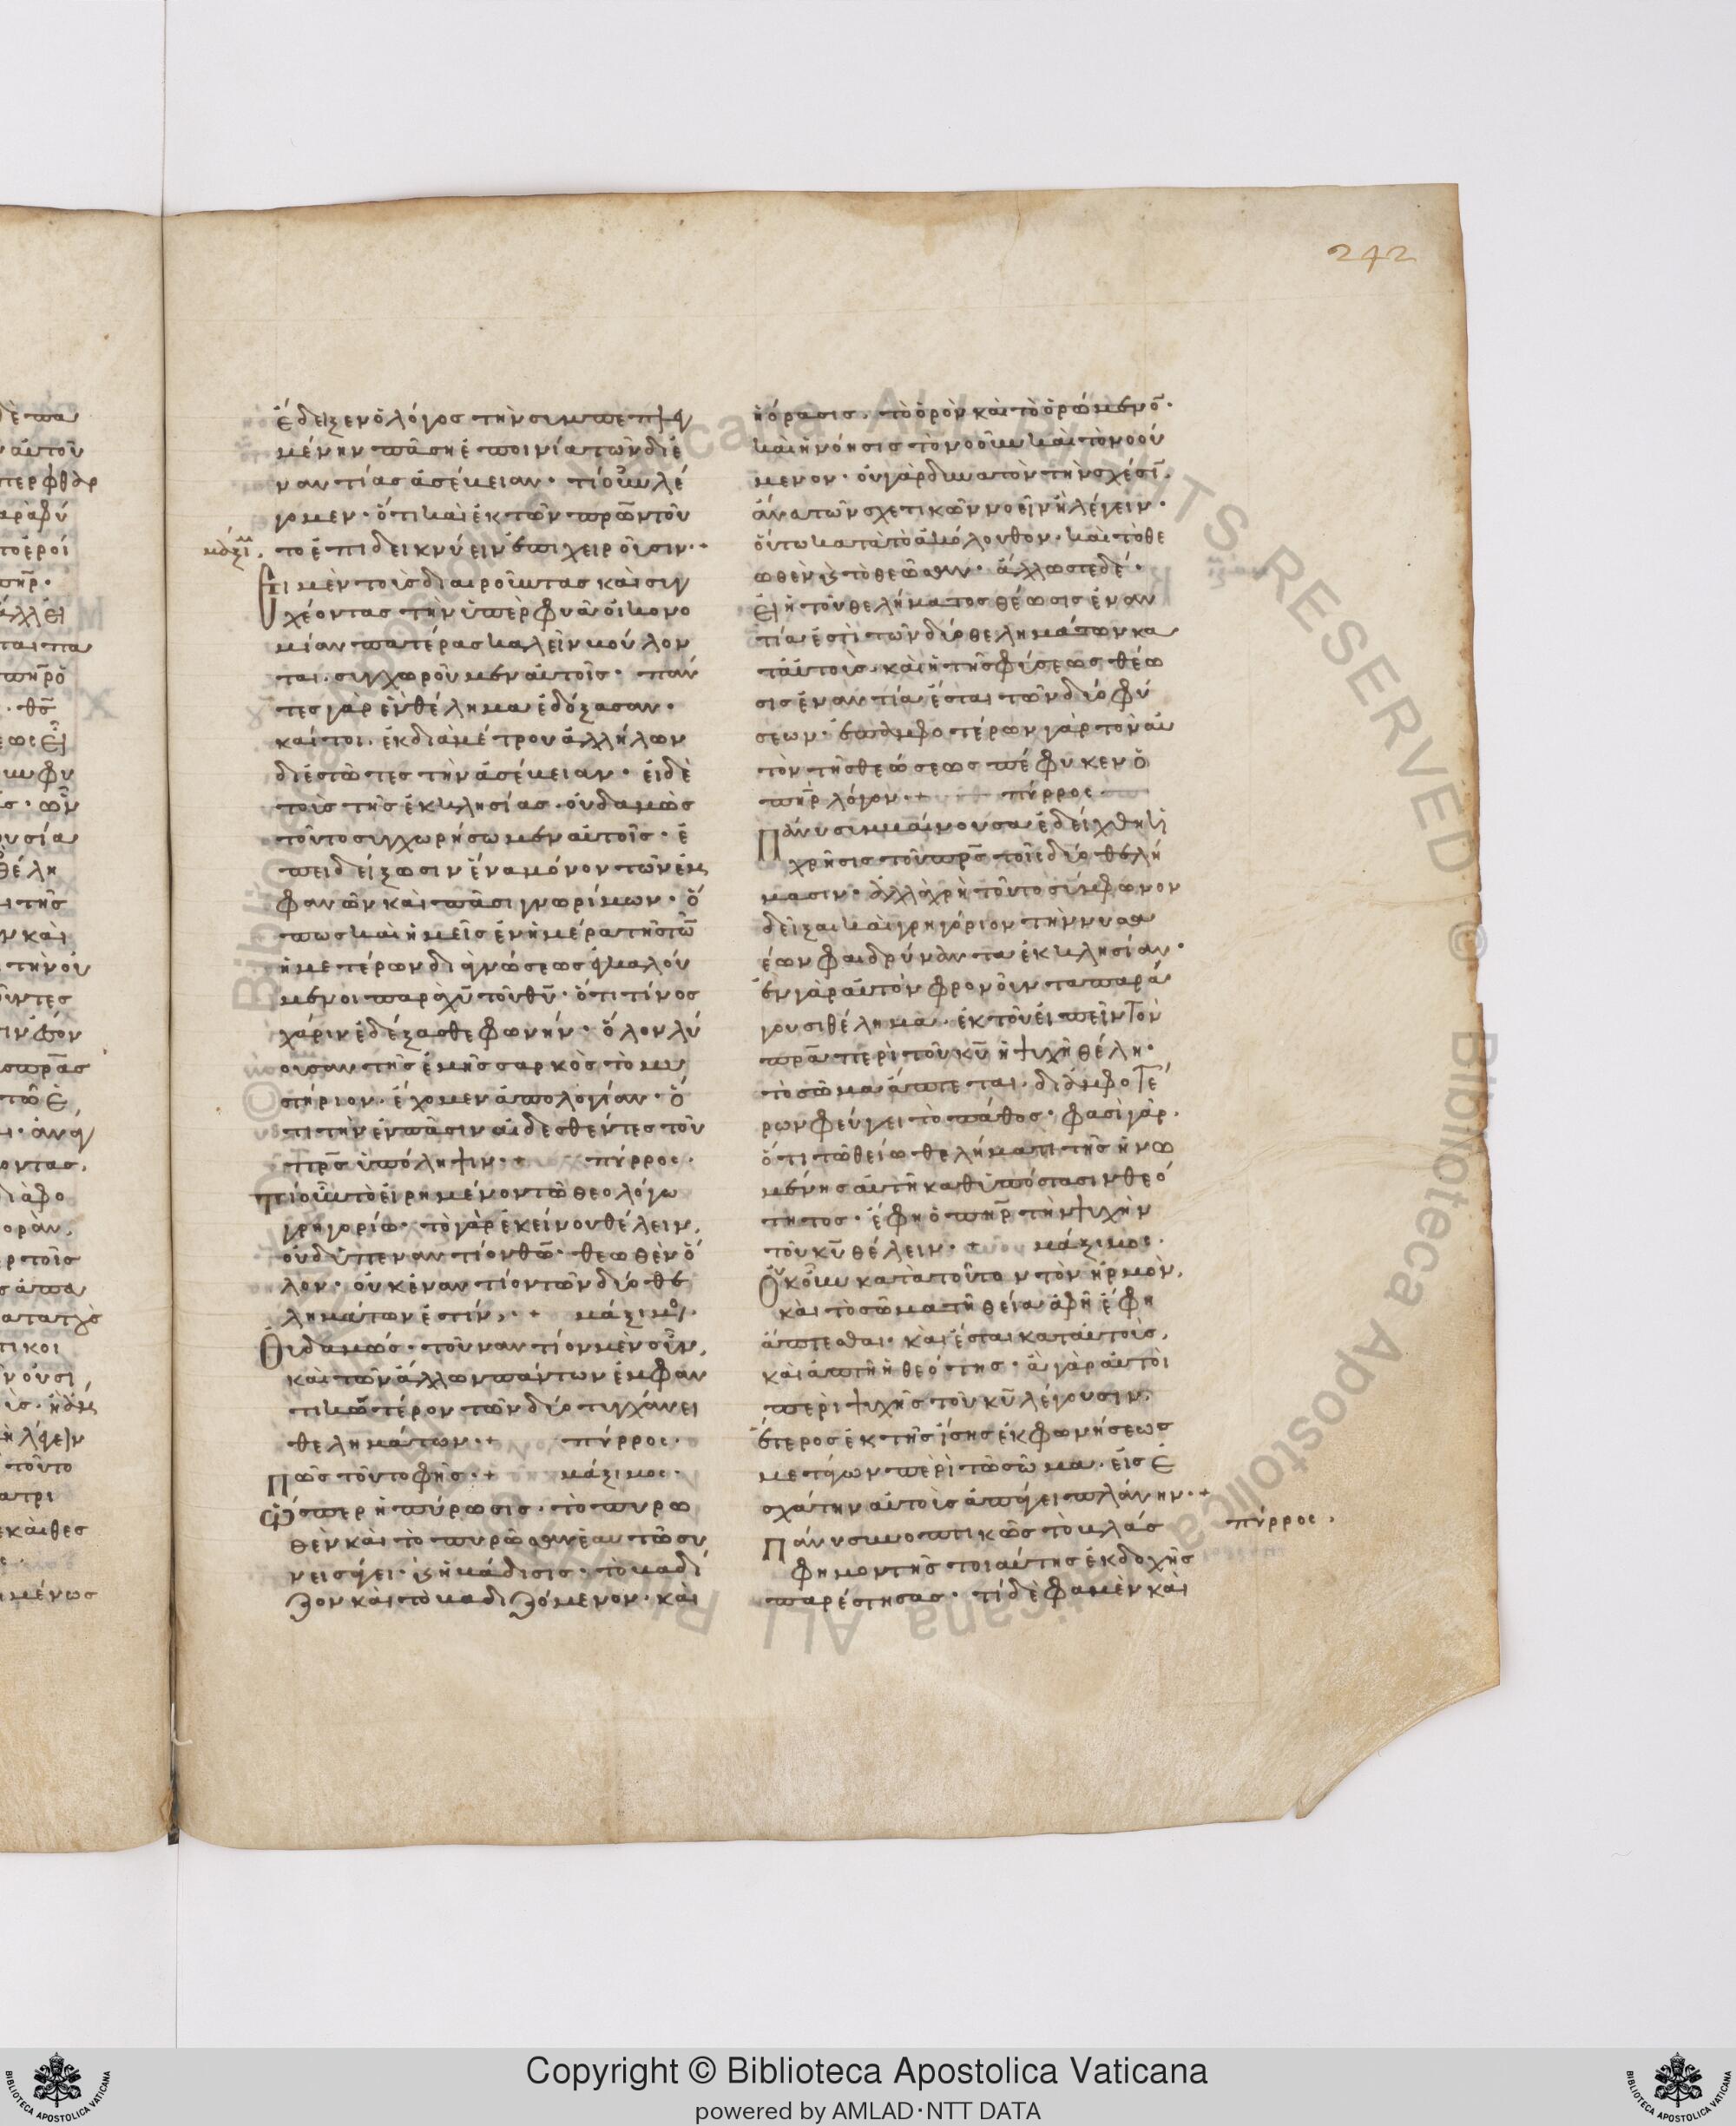 242
ἔδειξεν ὁ λόγος τὴν συμπεπλεγ
μένην πάσῃ ἐπινοίᾳ τῶν δι ἐ
ναντίας ἀσέβειαν· τί οὖν λέ
γομεν· ὅτι καὶ ἐκ τῶν πρῶν τοῦ
το ἐπιδεικνύειν ἐπιχειροῦσιν·+
Εἰ μὲν τοὺς διαιροῦντας καὶ συγ
χέοντας τὴν ὑπερφυᾶ οἰκονο
μίαν πατέρας καλεῖν βούλον
ται. συγχωροῦμεν αὐτοῖς· πάν
τες γὰρ ἓν θέλημα ἐδόξασαν·
καίτοι. ἐκ διαμέτρου ἀλλήλων
διεστῶτες τὴν ἀσέβειαν· εἰ δὲ
τοὺς τῆς ἐκκλησίας. οὐδαμῶς
τοῦτο συγχωρήσωμεν αὐτοῖς· ἐ
πειδείξωσιν ἕνα μόνον τῶν ἐμ
φανῶν καὶ πᾶσι γνωρίμων· ὅ
πως καὶ ἡμεῖς ἐν ἡμέρα τῆς τῶ
ἡμετέρων διαγνώσεως ἐγκαλού
μενοι παρὰ χυ τοῦ θυ· ὅτι τίνος
χάριν ἐδέξασθε φωνὴν· ὅλον λύ
ουσαν τῆς ἐμῆς σαρκὸς τὸ μυ
στήριον. ἔχομεν ἀπολογίαν· ὅ
τι τὴν ἐν πᾶσιν αἰδεσθέντες τοῦ
πρς ὑπόληψιν·+ πύρρος·
τί οὖν τὸ εἰρημένον τῶ θεολόγω
γρηγορίω· τὸ γὰρ ἐκείνου θέλειν,
οὐδὲ ὑπεναντίον θω· θεωθὲν ὅ
λον· οὐκ ἐναντίον τῶν δύο θε
λημάτων ἐστίν·+ μάξιμος·
Οὐδαμῶς· τοὐναντίον μὲν οὖν,
καὶ τῶν ἄλλων πάντων ἐμφαν
τικώτερον τῶν δύο τυγχάνει
θελημάτων·+ πύρρος·
Πῶς τοῦτο φής·+ μάξιμος·
Ὥσπερ ἡ πύρωσις. τὸ πυρω
θὲν καὶ τὸ πυρῶσαν ἑαυτῶ συ
νεισάγει· καὶ ἡ βάδισις. τὸ βαδί
ζον καὶ τὸ βαδιζόμενον· καὶ
μάξι
ἡ ὅρασις. τὸ ὁρὸν καὶ τὸ ὁρώμενο·
καὶ ἡ νόησις τὸ νοοῦν καὶ τὸ νοού
μενον· οὐ γὰρ δυνατὸν τὴν σχέσι.
ἄνα τῶν σχετικῶν νοεῖν ἢ λέγειν·
οὕτω κατὰ τὸ ἀκόλουθον. καὶ τὸ θε
ωθὲν καὶ τὸ θεῶσαν· ἄλλωστε δὲ·
Εἰ ἡ τοῦ θελήματος θέωσις ἐναν
τία ἐστὶ τῶν δύο θελημάτων κα
τ αὐτοὺς. καὶ ἡ τῆς φύσεως θέω
σις ἐναντία ἔσται τῶν δύο φύ
σεων· ἐπ ἀμφοτέρων γὰρ τὸν αὐ
τὸν τῆς θεώσεως τέθυκεν ὁ
πηρ λόγον·+ πύρρος
Πάνυ συμβαίνουσα ἐδείχθη ἡ
χρῆσις τοῦ πρς τοῖς δύο θελή
μασιν· ἀλλὰ χρὴ τοῦτο σύμφωνον
δεῖξαι καὶ γρηγόριον τὴν νυσσα
έων φαιδρύναντα ἐκκλησίαν·
ἓν γὰρ αὐτὸν φρονοῦντα παρά
γουσι θέλημα. ἐκ τοῦ εἰπεῖν τὸν
πρα περὶ τοῦ κυ ἡ ψυχὴ θέλει·
τὸ σῶμα ἅπτεται. δι ἀμφοτέ
ρων φεύγει τὸ πάθος· φασὶ γὰρ.
ὅτι τῶ θείω θελήματι τῆς ἡνω
μένης αὐτῆ καθ ὑπόστασιν θεό
τητος· ἔφη ὁ πηρ τὴν ψυχὴν
τοῦ κυ θέλειν·+ μάξιμος·
Οὐκοῦν κατὰ τοῦτον τὸν εἱρμὸν,
καὶ τὸ σῶμα τῆ θεία ἁφῆ ἔφη
ἅπτεσθαι· καὶ ἔσται κατ αὐτοὺς,
καὶ ἁπτὴ ἡ θεότης· ἃ γὰρ αὐτοὶ
περὶ ψυχῆς τοῦ κυ λέγουσιν.
ἕτερος ἐκ τῆς ἴσης ἐκφωνήσεως
μετάγων περὶ τὸ σῶμα. εἰς ἐ
σχάτην αὐτοὺς ἀπάγει πλάνην·+
Πάνυ συνοπτικῶς τὸ βλάσ
φημον τῆς τοιαύτης ἐκδοχῆς
παρέστησας· τί δὲ φαμὲν καὶ
πύρρος.
Copyright © Biblioteca Apostolica Vaticana
powered by AMLAD·NTT DATA